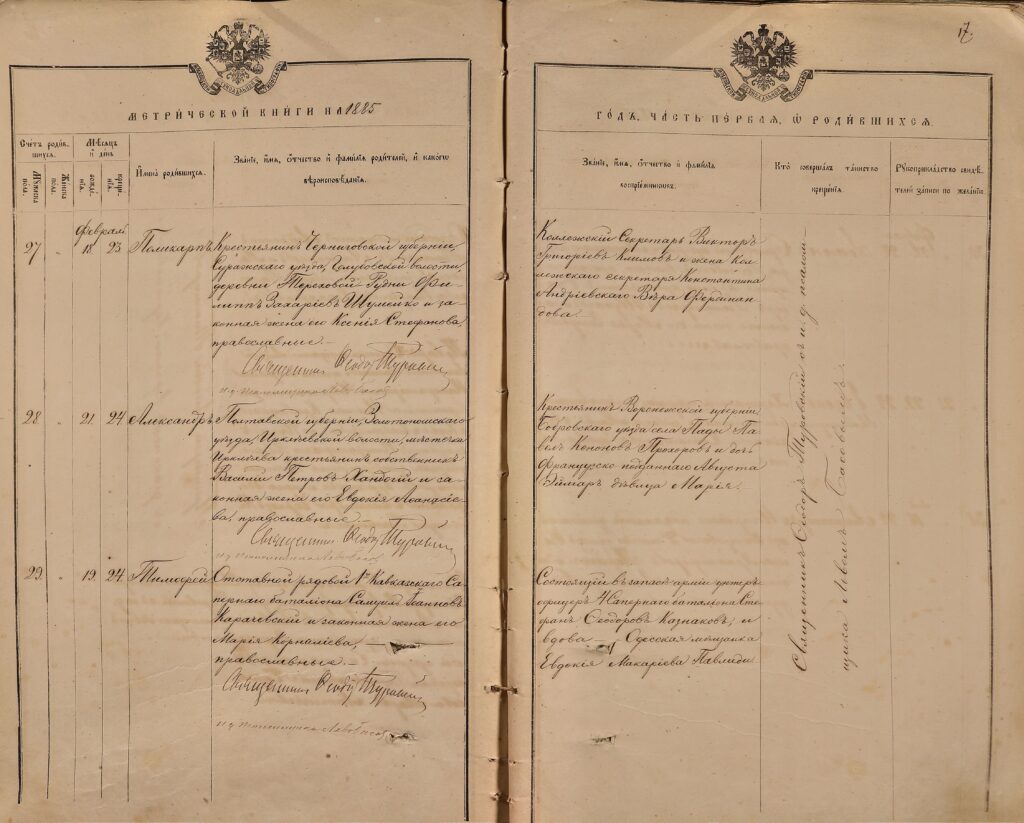 17.
МЕТРИ́ЧЕСКОЙ КНИ́ГИ НА 1885
ГО́ДЪ, ЧА́СТЬ ПЕ́РВАЯ, Ѡ РОДИ́ВШИХСЯ.
Сче́тъ роди́в-
шихся.
Му́жеска по́ла.
Же́нска по́ла.
Мѣ́сяцъ
и́ день
рожде́-
нїя.
креще́-
нїя.
И́мена роди́вшихся.
Зва́нїе, и́мя, ѻ́тчество и́ фами́лїя роди́телей, и́ како́гѡ
вѣроисповѣ́данїя.
Зва́нїе, и́мя, ѻ́тчество и́ фами́лїя
воспрїе́мниковъ.
Кто̀ соверша́лъ та́инство
креще́нїя.
Рꙋкоприкла́дство свидѣ́-
телей за́писи по жела́нїю.
Февраль
27 " 18. 23 Поликарпъ
Крестьянинъ Черниговской губерніи,
Суражскаго уѣзда, Голубовской волости,
деревни Тереховой Рудни Фи-
липпъ Захаріевъ Шумейко и за-
конная жена его Ксенія Стефанова,
православные.—
Священникъ Ѳеодоръ Туровскій
Коллежскій Секретарь Викторъ
Григоріевъ Климовъ и жена Кол-
лежскаго секретаря Константина
Андріевскаго Вѣра Фердинан-
дова.
28. " 21. 24. Александръ
Полтавской губерніи, Золотоношскаго
уѣзда, Ирклѣевской волости, мѣстечка
Ирклѣева крестьянинъ собственникъ
Василій Петровъ и за-
конная жена его Евдокія Аѳанасіе-
ва, православные.—
Священникъ Ѳеодоръ Туровскій
Крестьянинъ Воронежской губерніи,
Бобровскаго уѣзда села Пады Па-
велъ Кононовъ Прохоровъ и дочь
Французско-подданнаго Августа
Эймаръ дѣвица Марія.
29. " 19. 24. Тимофей
Отставной рядовой 1го Кавказскаго Са-
пернаго баталіона Самуилъ Іоанновъ
Карачевскій и законная жена его
Марія Корниліева, —
православные.—
Священникъ Ѳеодоръ Туровскій
Состоящій въ запасѣ арміи унтеръ
офицеръ 4 Сапернаго баталіона Сте-
фанъ Ѳеодоровъ Казнаковъ, и
вдова — Одесская мѣщанка
Евдокія Макаріева Павлиди
Священникъ Ѳеодоръ Туровскій съ и. д. псалом-
щика